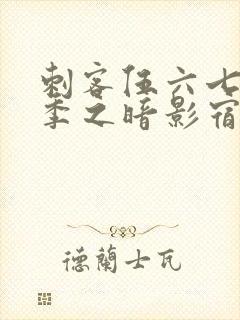 刺客伍六七
季之暗影宿
德蘭士瓦